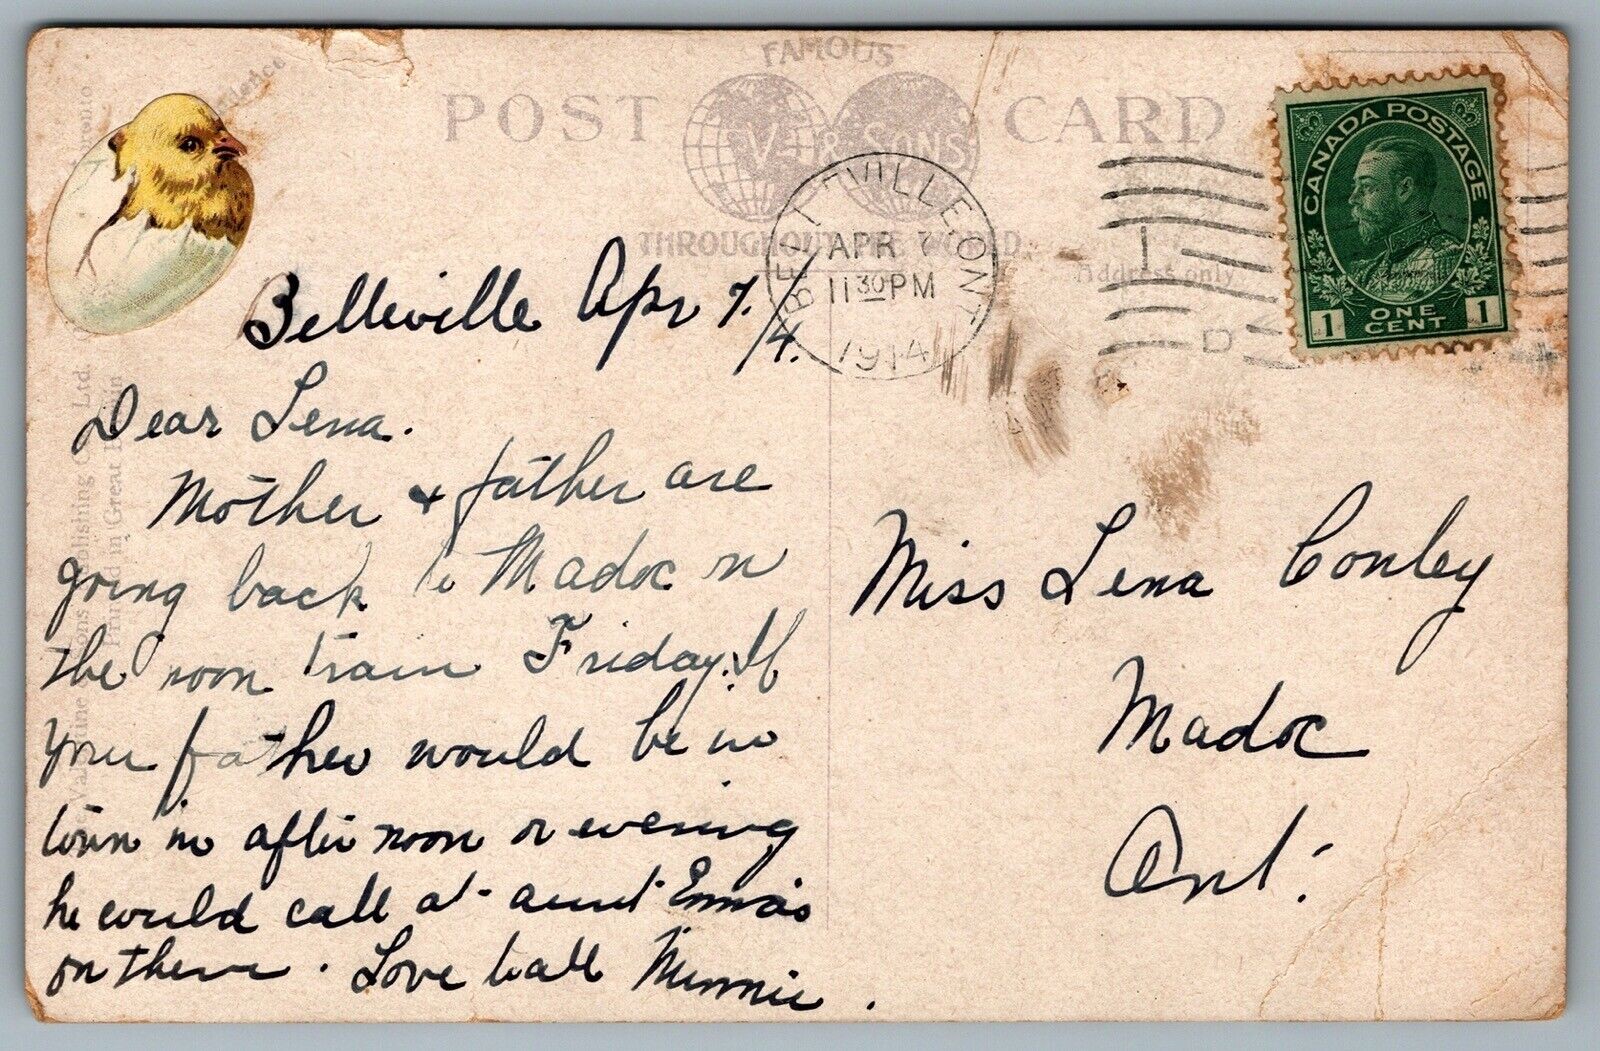 FAMOUS
POST CARD
V & SONS
THROUGHOUT THE WORLD
Address only
BELLEVILLE ONT
APR 7
11 30 PM
1914
1
D
CANADA POSTAGE
1 ONE CENT 1
Valentine & Sons Publishing Co. Ltd. Toronto
Printed in Great Britain
Belleville Apr 7./14.
Dear Lena.
Mother & father are
going back to Madoc on
the noon train Friday. If
your father would be in
town in afternoon or evening
he could call at aunt Emma's
on them. Love to all Minnie.
Miss Lena Conley
Madoc
Ont.